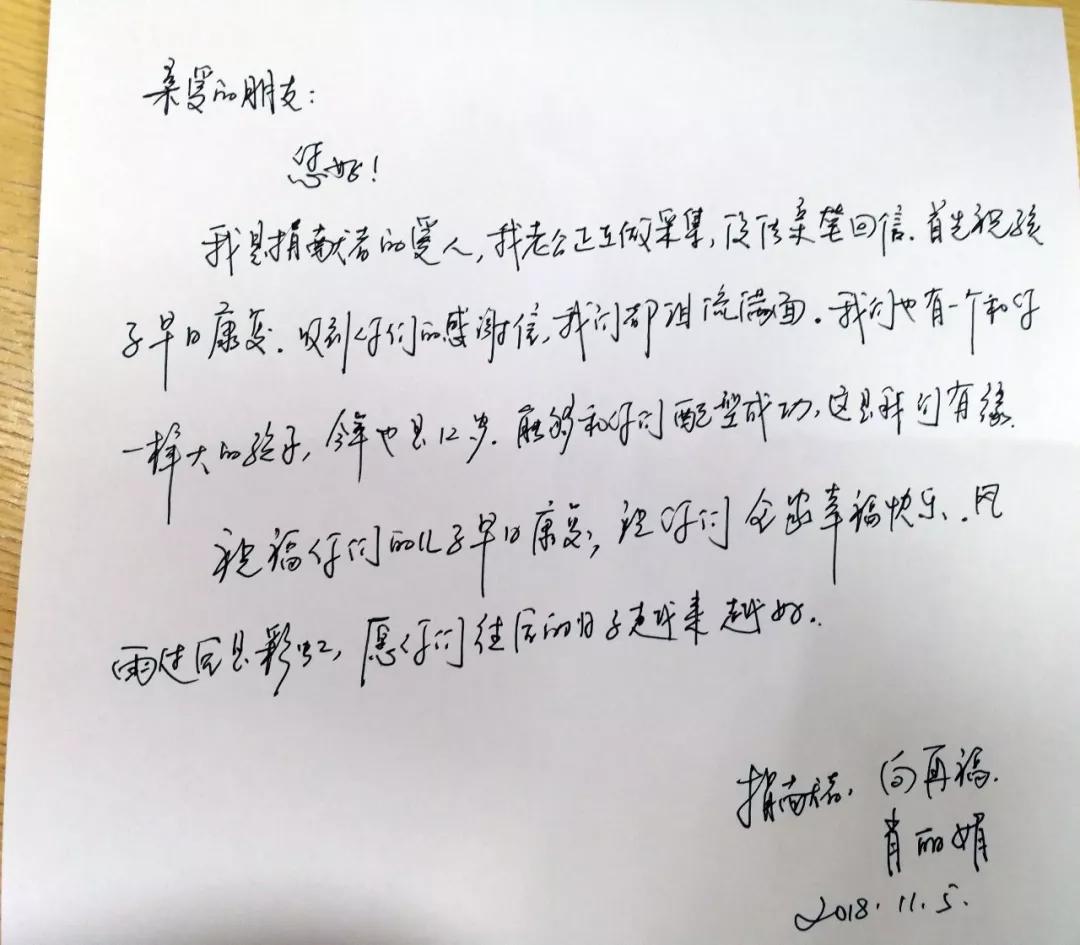 亲爱的朋友：
您好！
我是捐献者的爱人，我老公正在做采集，没法亲笔回信。首先祝孩
子早日康复。收到你们的感谢信，我们都泪流满面。我们也有一个和你
一样大的孩子，今年也是12岁。能够和你们配型成功，这是我们有缘。
祝福你们的儿子早日康复，祝你们全家幸福快乐。风
雨过后是彩虹，愿你们往后的日子越来越好。
捐献者：向再福
肖丽娟
2018.11.5.